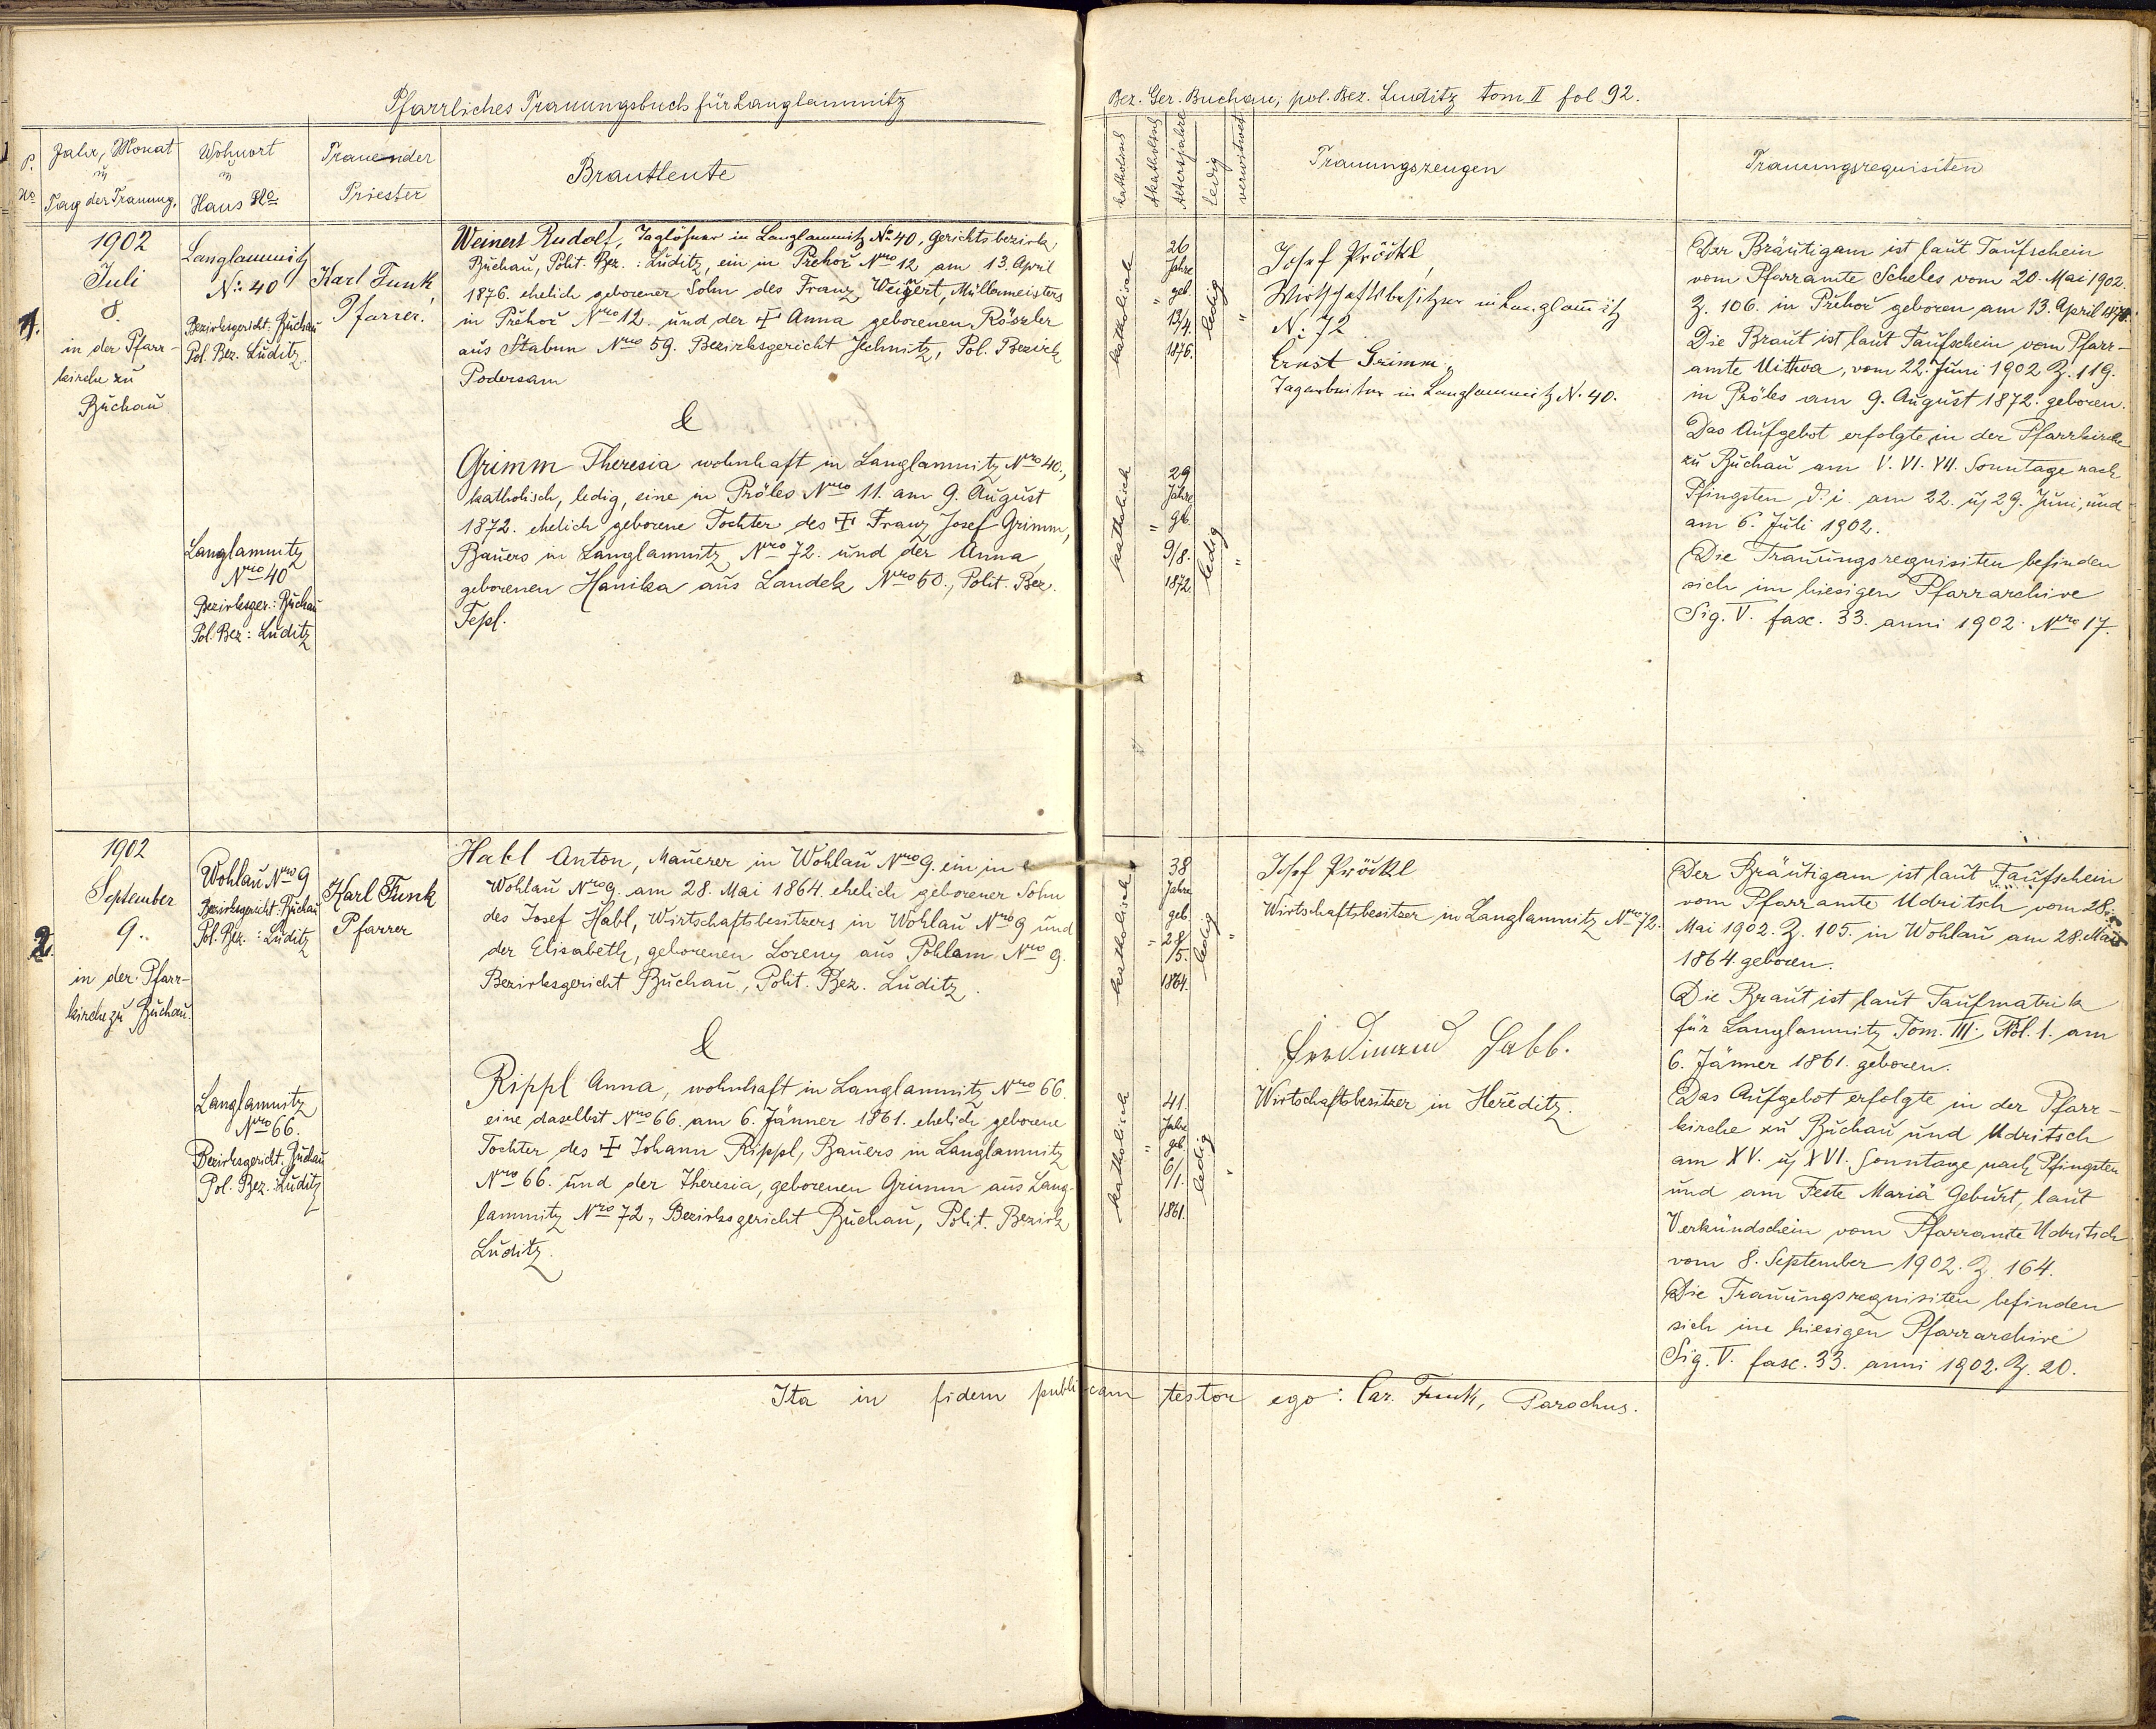 Pfarrliches Trauungsbuch für Langlammitz
Bez. Ger. Buchau, pol. Bez. Luditz tom II fol 92.
P. No
Jahr, Monat u Tag der Trauung.
Wohnort u Haus No
Trauender Priester
Brautleute
katholisch
Akatholisch
Altersjahre
ledig
verwitwet
Trauungszeugen
Trauungsrequisiten
1.
1902
Juli
8.
in der Pfarr-
kirche zu
Buchau
Langlammitz
No: 40
Bezirksgericht: Buchau
Pol. Bez. Luditz.
Karl Funk,
Pfarrer.
Weinert Rudolf, Taglöhner in Langlammitz No 40, Gerichtsbezirk
Buchau, Polit. Bez.: Luditz, ein in Prehoř Nro 12 am 13. April
1876. ehelich geborener Sohn des Franz Weinert, Müllermeisters
in Prěhoř Nro 12. und der ✝ Anna geborenen Röszler
aus Stabun Nro 59. Bezirksgericht Jechnitz, Pol. Bezirk
Podersam
&
Langlamnitz
Nro 40
Bezirksger.: Buchau
Pol. Bez: Luditz
Grimm Theresia wohnhaft in Langlamnitz Nro 40.,
katholisch, ledig, eine in Pröles Nro 11. am 9. August
1872. ehelich geborene Tochter des ✝ Franz Josef Grimm,
Bauers in Langlamnitz Nro 72. und der Anna,
geborenen Hanika aus Landek Nro 60., Polit. Bez.
Tepl.
katholisch
26
Jahre
geb
13/4.
1876.
ledig
katholisch
29
Jahre
gb.
9/8.
1872.
ledig
Josef Pröckl,
Wirtschaftsbesitzer in Langlam̄itz
N: 72
Ernst Grimm,
Tagarbeiter in Langlammitz N. 40.
Der Bräutigam ist laut Taufschein
vom Pfarramte Scheles vom 20. Mai 1902.
Z. 106. in Prěhoř geboren am 13. April 1876.
Die Braut ist laut Taufschein vom Pfarr-
amte Uitwa, vom 22. Juni 1902 Z. 119.
in Pröles am 9. August 1872. geboren.
Das Aufgebot erfolgte in der Pfarrkirche
zu Buchau am V. VI. VII. Sonntage nach
Pfingsten d. i. am 22. u 29. Juni, und
am 6. Juli 1902.
Die Trauungsrequisiten befinden
sich im hiesigen Pfarrarchive
Sig. V. fasc. 33. anni 1902. Nro 17.
2.
1902
September
9..
in der Pfarr-
kirche zu Buchau.
Wohlau Nro 9
Bezirksgericht: Buchau
Pol. Bez.: Luditz
Karl Funk
Pfarrer
Habl Anton, Mauerer in Wohlau Nro 9. ein in
Wohlau Nro 9. am 28. Mai 1864. ehelich geborener Sohn
des Josef Habl, Wirtschaftsbesitzers in Wohlau Nro 9 und
der Elisabeth, geborenen Lorenz aus Pohlam Nro 9.
Bezirksgericht Buchau, Polit. Bez. Luditz.
&
Langlamnitz
Nro 66.
Bezirksgericht: Buchau
Pol. Bez.: Luditz
Rippl Anna, wohnhaft in Langlamnitz Nro 66.
eine daselbst Nro 66. am 6. Jänner 1861. ehelich geborene
Tochter des ✝ Johann Rippl, Bauers in Langlamnitz
Nro 66. und der Theresia, geborenen Grimm aus Lang-
lamnitz Nro 72., Bezirksgericht Buchau, Polit. Bezirk
Luditz.
katholisch
38
Jahre
geb
28/
/5.
1864.
ledig
katholisch
41.
Jahre
geb.
6/1.
1861.
ledig
Josef Pröckl
Wirtschaftsbesitzer in Langlamnitz Nro 72.
Ferdinand Habl.
Wirtschaftsbesitzer in Hereditz.
Der Bräutigam ist laut Taufschein
vom Pfarramte Udritsch vom 28.
Mai 1902. Z. 105. in Wohlau am 28. Mai
1864. geboren.
Die Braut ist laut Taufmatrik
für Langlamnitz Tom. III. Fol. 1. am
6. Jänner 1861. geboren.
Das Aufgebot erfolgte in der Pfarr-
kirche zu Buchau und Udritsch
am XV. u XVI. Sonntage nach Pfingsten
und am Feste Mariä Geburt, laut
Verkündschein vom Pfarramte Udritsch
vom 8. September 1902. Z. 164.
Die Trauungsrequisiten befinden
sich im hiesigen Pfarrarchive
Sig. V. fasc. 33. anni 1902. Z. 20.
Ita in fidem publicam testor ego: Car. Funk, Parochus.